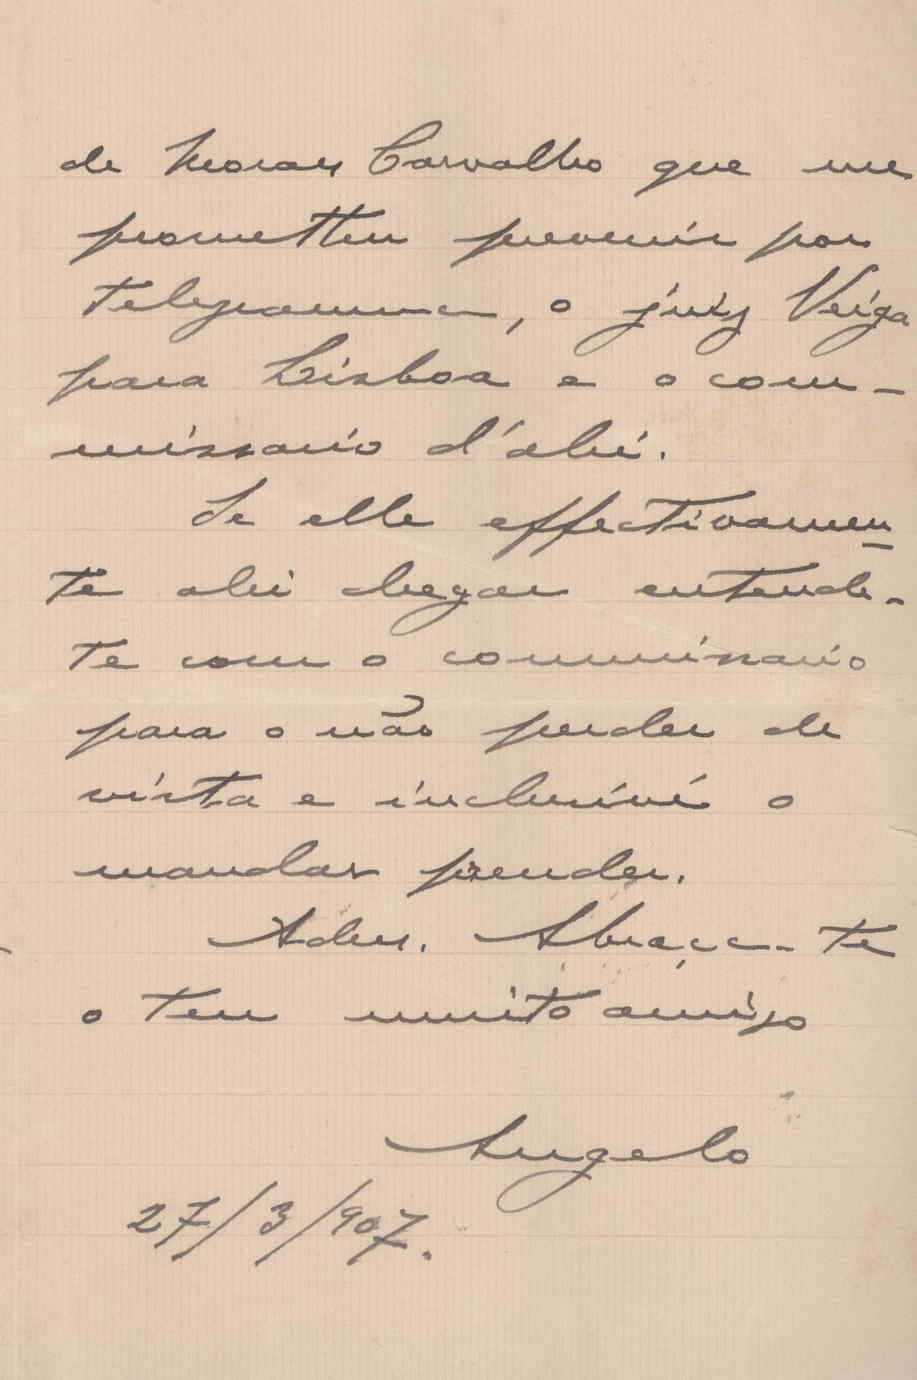 de Moraes Carvalho que me
prometteu prevenir por
telegramma, o juiz Veiga
para Lisboa e o com-
missario d'ahi.
Se elle effectivamen-
te ahi chegar entende-
te com o commissario
para o não perder de
vista e inclusivé o
mandar prender.
Adeus. Abraça-te
o teu muito amigo
Angelo
27/3/907.